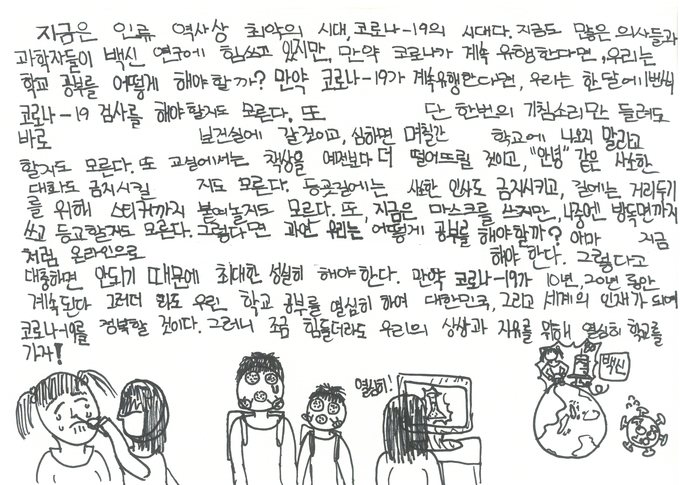 지금은 인류 역사상 최악의 시대, 코로나-19의 시대다. 지금도 많은 의사들과
과학자들이 백신 연구에 힘쓰고 있지만, 만약 코로나가 계속 유행한다면, 우리는
학교 공부를 어떻게 해야 할까? 만약 코로나-19가 계속 유행한다면, 우리는 한 달에 1번씩
코로나-19 검사를 해야 할지도 모른다. 또 단 한번의 기침소리만 들려도
바로 보건실에 갈 것이고, 심하면 며칠간 학교에 나오지 말라고
할지도 모른다. 또 교실에서는 책상을 예전보다 더 떨어뜨릴 것이고, "안녕" 같은 사소한
대화도 금지시킬 지도 모른다. 등굣길에는 사소한 인사도 금지시키고, 길에는, 거리두기
를 위해 스티커까지 붙여놓을지도 모른다. 또, 지금은 마스크를 쓰지만, 나중엔 방독면까지
쓰고 등교할지도 모른다. 그렇다면 과연 우리는 어떻게 공부를 해야할까? 아마 지금
처럼 온라인으로 해야 한다. 그렇다고
대충하면 안되기 때문에 최대한 성실히 해야한다. 만약 코로나-19가 10년, 20년 동안
계속된다 그러더 라도 우린, 학교 공부를 열심히 하여 대한민국, 그리고 세계의 인재가 되어
코로나-19를 정복할 것이다. 그러니 조금 힘들더라도 우리의 상상과 자유를 위해 열심히 학교를
가자!
열심히!
백신